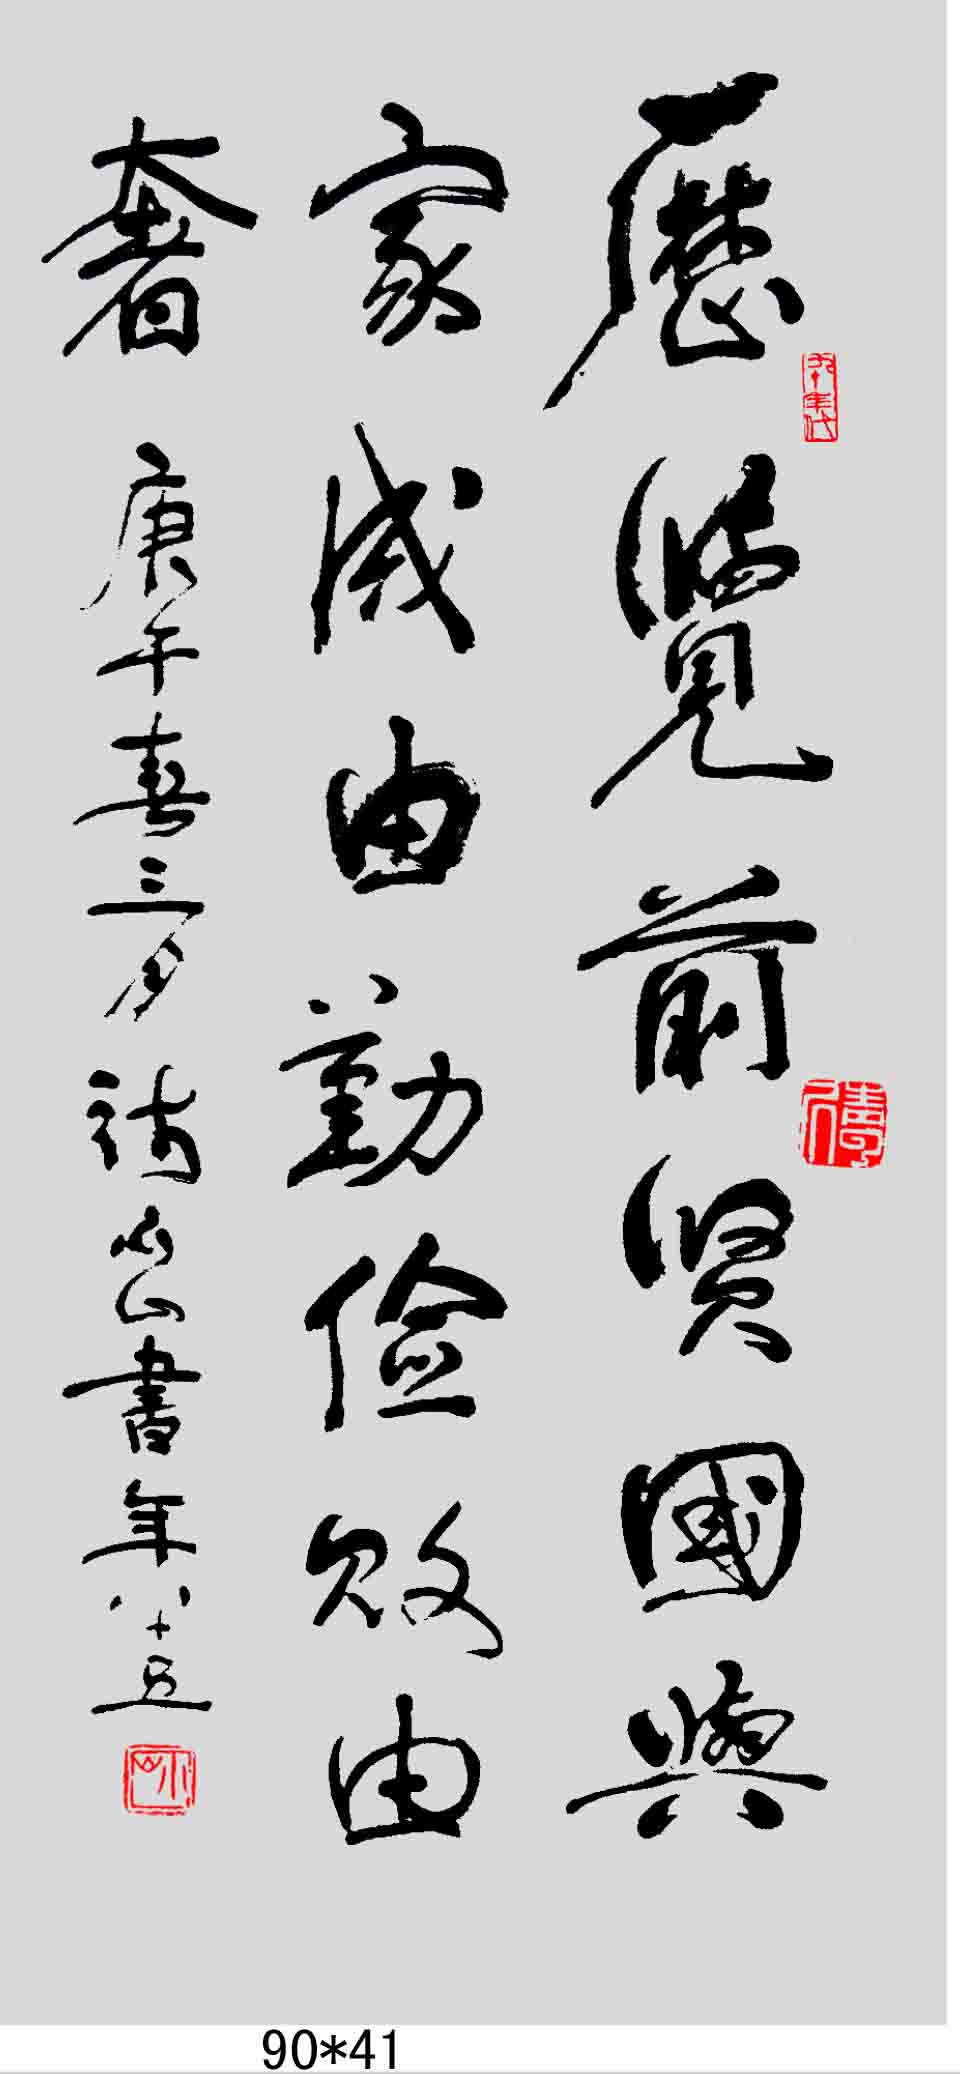 九十年代
歷覽前賢國與
家成由勤儉敗由
奢 庚午春三月 山書年八十五
90*41